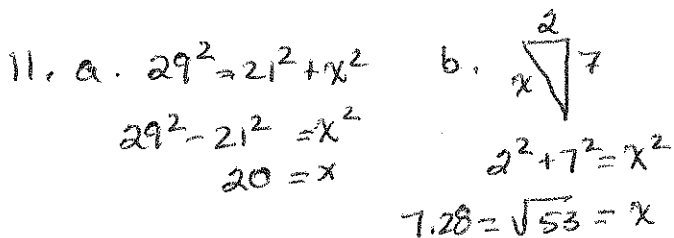 11. a. 29² = 21² + x²
29² - 21² = x²
20 = x
b.
2
7
x
2² + 7² = x²
7.28 = √53 = x